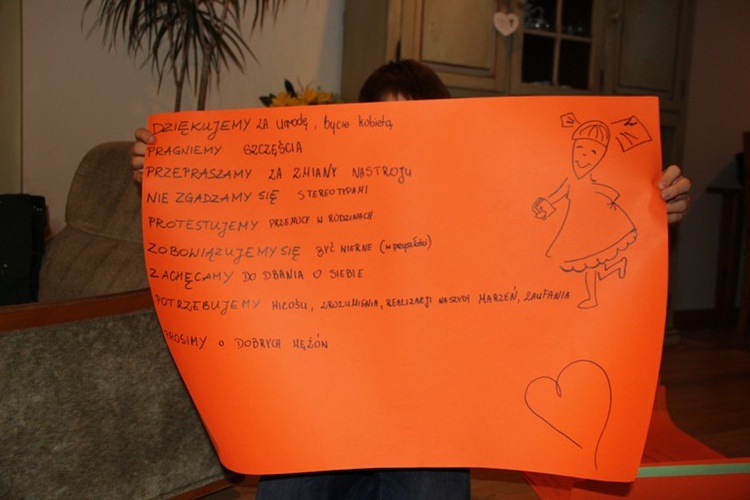 DZIĘKUJEMY ZA urodę, bycie kobietą
PRAGNIEMY SZCZĘŚCIA
PRZEPRASZAMY ZA ZMIANY NASTROJU
NIE ZGADZAMY SIĘ STEREOTYPAMI
PROTESTUJEMY PRZEMOCY W RODZINACH
ZOBOWIĄZUJEMY SIĘ BYĆ WIERNE (w przyszłości)
ZACHĘCAMY DO DBANIA O SIEBIE
POTRZEBUJEMY MIŁOŚCI, ZROZUMIENIA, REALIZACJI NASZYCH MARZEŃ, ZAUFANIA
PROSIMY O DOBRYCH MĘŻÓW